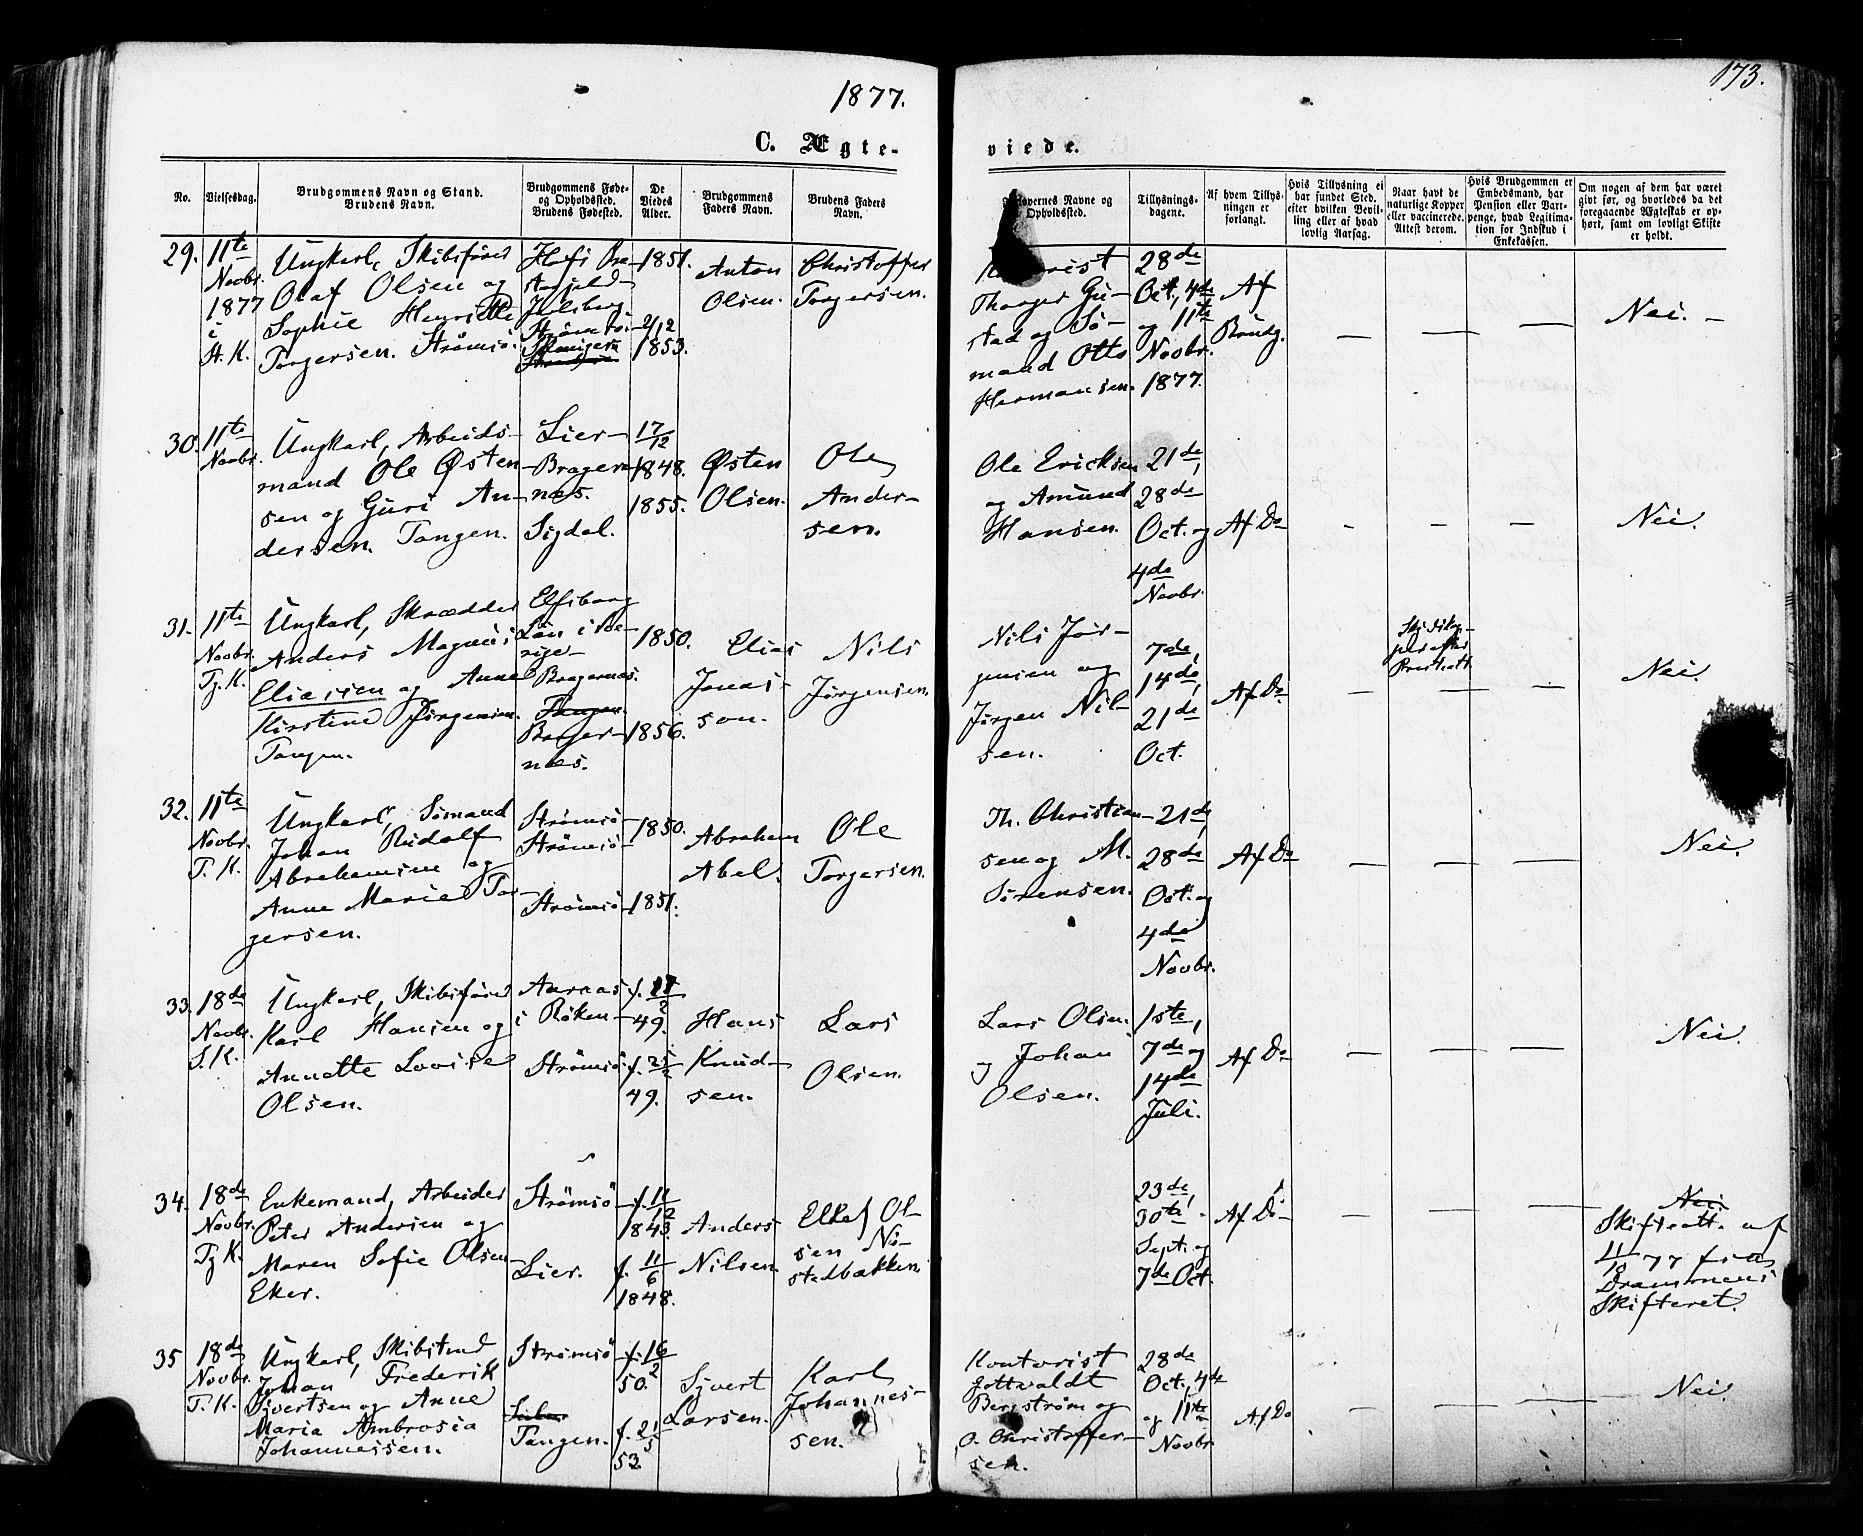 1877.
173.
C. Ægte-
viede.
No.
Vielsesdag.
Brudgommens Navn og Stand.
Brudens Navn.
Brudgommens Føde-
og Opholdssted.
Brudens Fødested.
De
Viedes
Alder.
Brudgommens
Faders Navn.
Brudens Faders
Navn.
Forlovernes Navne og
Opholdssted.
Tillysnings-
dagene.
Af hvem Tillys-
ningen er
forlangt.
Hvis Tillysning ei
har fundet Sted,
efter hvilken Bevil-
ling eller af hvad
lovlig Aarsag.
Naar havt de
naturlige Kopper
eller vaccinerede.
Attest derom.
Hvis Brudgommen er
Embedsmand, har
Pension eller Vart-
penge, hvad Legitima-
tion for Indskud i
Enkekassen.
Om nogen af dem har været
gift før, og hvorledes da det
foregaaende Ægteskab er op-
hørt, samt om lovligt Skifte
er holdt.
29.
11te
Novbr.
1877
i
St. K.
Ungkarl, Skibsfører
Olaf Olsen og
Sophie Henriette
Torgersen. Strømsö.
Jarlsberg
Strømsö
1851.
2/12
1853.
Anton
Olsen.
Christoffer
Torgersen.
Thorger Gu-
stad og Sö-
mand Otto
Hermansen.
28de
Oct., 4de
og 11te
Novbr.
1877.
Af
Brudg.
— — —
Nei. -
30.
11te
Novbr.
Ungkarl, Arbeids-
mand Ole Østen-
sen og Guri An-
dersen. Tangen.
Lier-
Brager-
næs.
Sigdal.
17/12
1848.
1855.
Østen
Olsen.
Ole
Ander-
sen.
Ole Ericksen
og Amund
Hansen.
21de,
28de
Oct. og
4de
Novbr.
Af Do
- - -
Nei.
31.
11te
Novbr.
Tg. K.
Ungkarl, Skrædder
Anders Magnus
Eliassen og Anne
Kirstine Jörgensen.
Tangen.
Elfsborg
Län i Sve-
rige-
Bragernæs.
Tangen.
Brager-
næs.
1850.
1856.
Elias
Jonas-
son.
Nils
Jörgensen.
Nils Jör-
gensen og
Jörgen Nil-
sen.
7de,
14de,
21de
Oct.
Af Do
— — —
Nei.
32.
11te
Novbr.
T. K.
Ungkarl, Sömand
Johan Rudolf
Abrahamsen og
Anne Marie Tor-
gersen.
Strömsö-
Strömsö-
Strömsö-
1850.
1851.
Abraham
Abel.
Ole
Torgersen.
Th. Christian-
sen og M.
Sörensen.
21de,
28de
Oct. og
4de
Novbr.
Af Do
— — —
Nei.
33.
18de
Novbr.
S. K.
Ungkarl, Skibsförer
Karl Hansen og
Annette Lovise
Olsen.
Aaraas
i Röken-
Strömsö
49.
49.
Hans
Knud-
sen.
Lars
Olsen.
Lars Olsen
og Johan
Olsen.
1ste,
7de og
14de
Juli.
Af Do
— — —
Nei.
34.
18de
Novbr.
Tg K.
Enkemand, Arbeider
Peter Andersen og
Maren Sofie Olsen
Eker.
Strömsö-
Lier.
f. 11/12
1843
f. 11/6
1848.
Anders
Nilsen
Ellef Ol-
sen No-
stedbakken.
23de,
30te
Sept. og
7de Oct.
Af Do-
— — —
Nei.
Skifteatt. af
77 fra
Drammens
Skifteret.
35
18de
Novbr.
T. K.
Ungkarl, Skibstmd
Johan Frederik
Sjvertsen og Anne
Maria Ambrosia
Johannessen.
Strømsö
Tangen.
f. 16/2
50.
f. 21/5
53.
Sjvert
Larsen.
Karl
Johannes-
sen.
Kontorist
Gottvaldt
Bergström og
O. Christoffer-
sen.
28de
Oct., 4de
og 11te
Novbr.
Af Do
— — —
Nei.